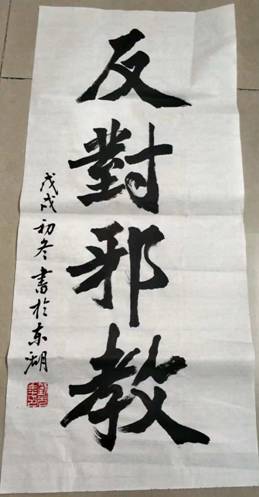 反對邪教
戊戌初冬書於东湖